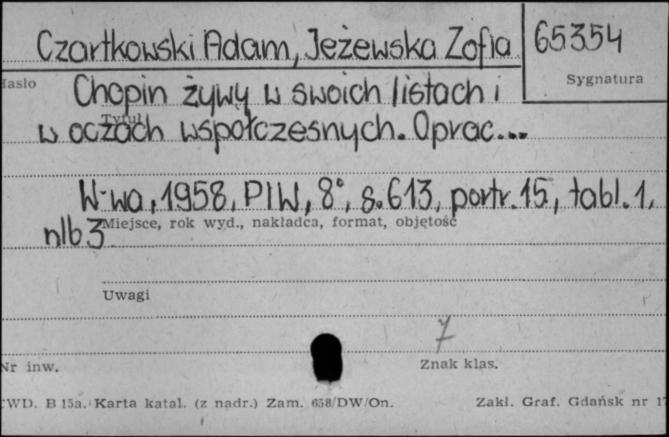 Czartkowski Adam, Jeżewska Zofia 65354
Hasło Sygnatura
Chopin żywy w swoich listach i
Tytuł
w oczach współczesnych. Oprac...
W-wa, 1958, PIW, 8°, s. 613, portr. 15, tabl. 1,
Miejsce, rok wyd., nakładca, format, objętość
nlb 3
Uwagi
7
Nr inw. Znak klas.
CWD. B 15a. Karta katal. (z nadr.) Zam. 658/DW/On. Zakł. Graf. Gdańsk nr